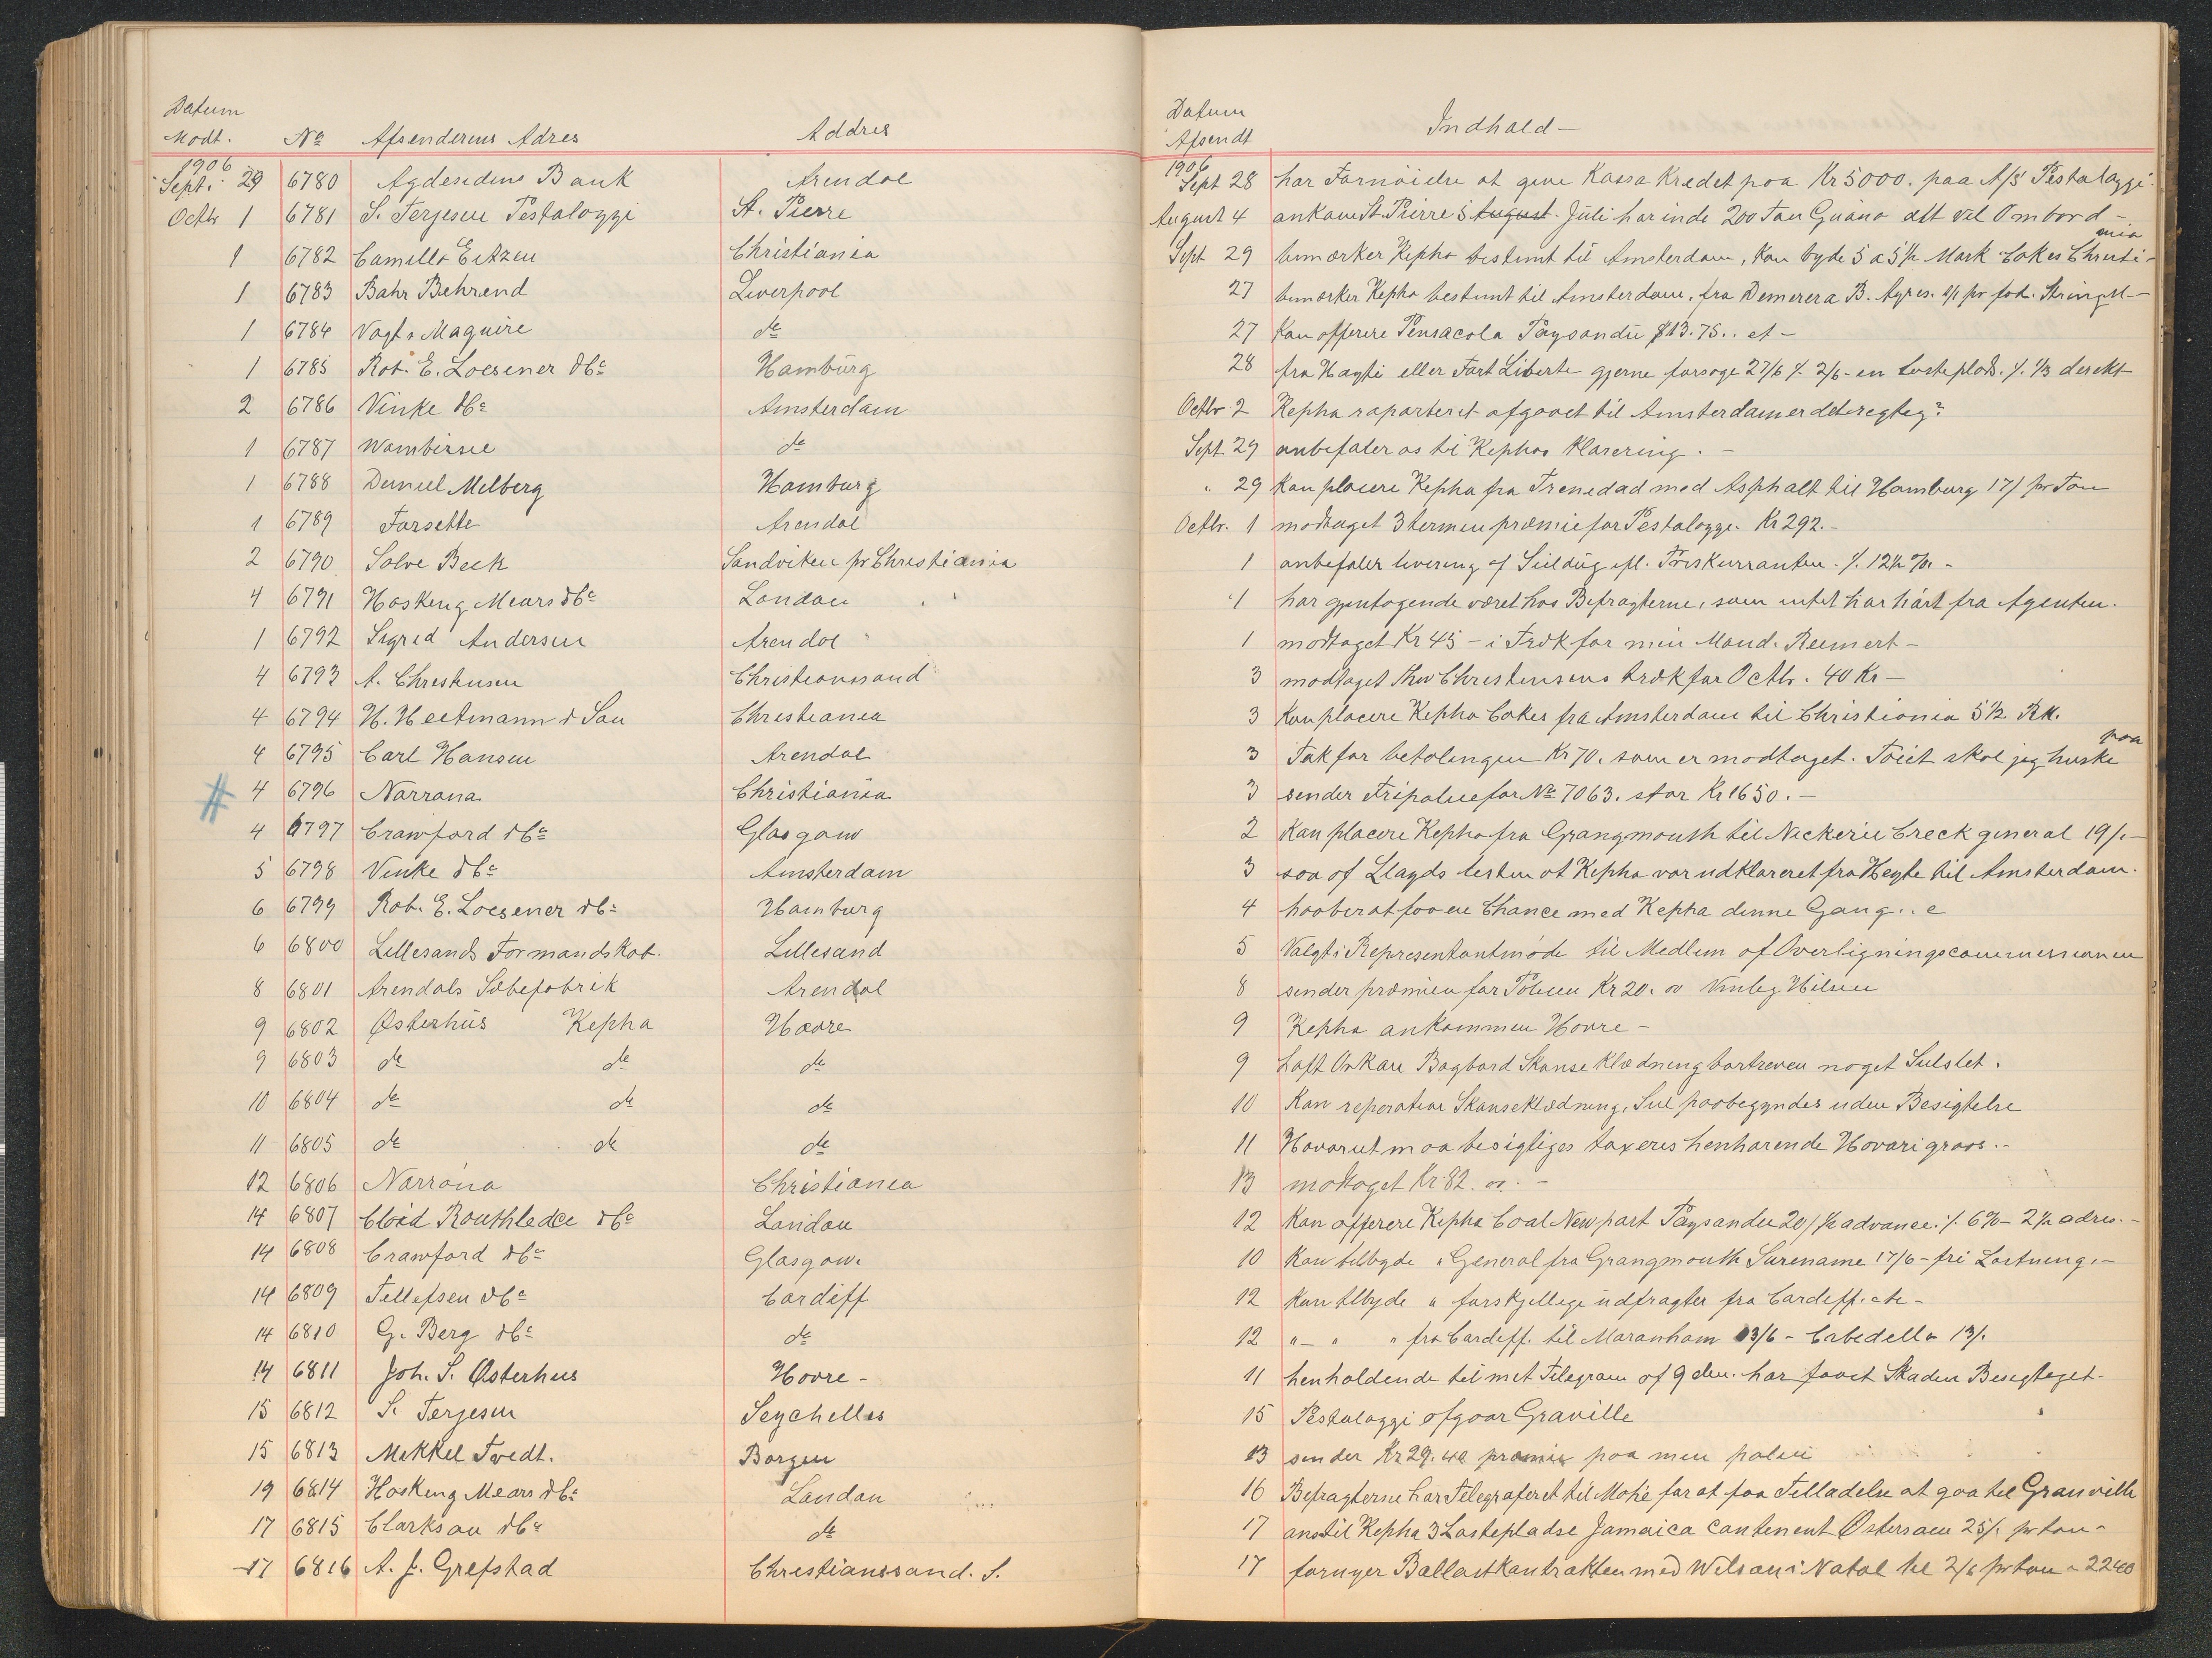 Datum
Modt. No Afsenderens Adres Addres
1906
Sept. 29 6780 Agdesidens Bank Arendal
Octbr 1 6781 S. Terjesen Pestalozzi St. Pierre
1 6782 Camillo Eitzen Christiania
1 6783 Bahr Behrend Liverpool
1 6784 Vogt & Maguire do
1 6785 Rob. E. Loesener & Co Hamburg
2 6786 Vinke & Co Amsterdam
1 6787 Wambersie do
1 6788 Daniel Milberg Hamburg
1 6789 Forsette Arendal
2 6790 Solve Beck Sandviken pr Christiania
4 6791 Hosking Mears & Co London
1 6792 Sigrid Andersen Arendal
4 6793 A. Christensen Christianssand
4 6794 H. Heitmann & Son Christiania
4 6795 Carl Hansen Arendal
# 4 6796 Norrøna Christiania
4 6797 Crawford & Co Glasgow
5 6798 Vinke & Co Amsterdam
6 6799 Rob. E. Loesener & Co Hamburg
6 6800 Lillesands Formandskab. Lillesand
8 6801 Arendals Sæbefabrik Arendal
9 6802 Østerhus Kepha Havre
9 6803 do do do
10 6804 do do do
11 6805 do do do
12 6806 Norrøna Christiania
14 6807 Cload Routhledce & Co London
14 6808 Crawford & Co Glasgow.
14 6809 Tellefsen & Co Cardiff
14 6810 G. Berg & Co do
14 6811 Joh. S. Østerhus Havre -
15 6812 S. Terjesen Seychelles
15 6813 Mikkel Tvedt. Borgen
19 6814 Hosking Mears & Co London
17 6815 Clarkson & Co do
17 6816 A. J. Grefstad Christianssand. S.
Datum
Afsendt Indhald -
1906
Sept 28 har Fornøielse at give Kassa Kredet paa Kr 5000. paa A/S Pestalozzi.
August 4 ankom St. Pierre 5 August. Juli har inde 200 Ton Guano alt vel Ombord -
Sept 29 bemærker Kepha bestemt til Amsterdam, kan byde 5 a 5½ Mark Cokes Christi-
nia
27 bemærker Kepha bestemt til Amsterdam, fra Demerera B. Ayres. pr fod.
27 Kan offerere Pensacola Paysandu $13.75.. et -
28 fra Hayti eller Fort Liberte gjerne forsøge 27/6 % 2/6 - en losteplads. % 1/3 derekt
Octbr 2 Kepha raporteret afgaaet til Amsterdam er det regtig?
Sept 29 anbefaler os til Kephas Klarering. -
" 29 Kan placere Kepha fra Trenedad med Asphalt til Hamburg 17/ pr Ton
Octbr. 1 modtaget 3 termin præmie for Pestalozzi. Kr 292. -
1 anbefaler levering af Seildug efl. Priskurranten. % 12½ %. -
1 har gjentagende været hos Befragterne, som intet har hørt fra Agenten.
1 modtaget Kr 45 - i Træk for min Mand. Reemert -
3 modtaget Thv Christensens træk for Octbr. 40 Kr -
3 Kan placere Kepha Cokes fra Amsterdam til Christiania 5½ Rk.
3 Tak for betalingen Kr 70. som er modtaget. Tøiet skal jeg huske
paa
3 sender Fripolice for No 7063. stor Kr 1650. -
2 Kan placere Kepha fra Grangmouth til Nickerie Creek general 19/. -
3 saa af Lloyds listen at Kepha var udklareret fra Heyte til Amsterdam.
4 haaber at faa en Chance med Kepha denne Gang..
5 Valgt i Representantmøde til Medlem af Overligningscommissionen
8 sender præmien for Polisen Kr 20. Hilsen
9 Kepha ankommen Havre -
9 Haft Orkan Bagbord Skanseklædning bortreven noget Seilslet.
10 Kan reperation Skanseklædning, Seil paabegyndes uden Besigtelse
11 Havariet maa besigtiges taxeres henhørende Havari groos. -
13 modtaget Kr. 82. -
12 Kan offerere Kepha Coal Newport Paysandu 20/ ½ advance. % 6% - 2½ adres. -
10 Kan tilbyde " General fra Grangmouth Surename 17/6 - fri Lostning. -
12 Kan tilbyde " forskjellige udfragter fra Cardiff. etc -
12 " - " " fra Cardiff. til Maranham 13/6 - Cabedello 13/.
11 henholdende til mit Telegram af 9 den. har faaet Skaden Besegteget -
15 Pestalozzi afgaar Graville
13 sender Kr 29.40 præmie paa min police
16 Befragterne har Telegraferet til Mahé for at faa Tilladelse at gaa til Granville
17 anstil Kepha 3 Lastepladse Jamaica Continent Østersøen 25/. pr ton -
17 fornyer Ballastkontrakten med Wilson i Natal til 2/6 pr ton a 2240